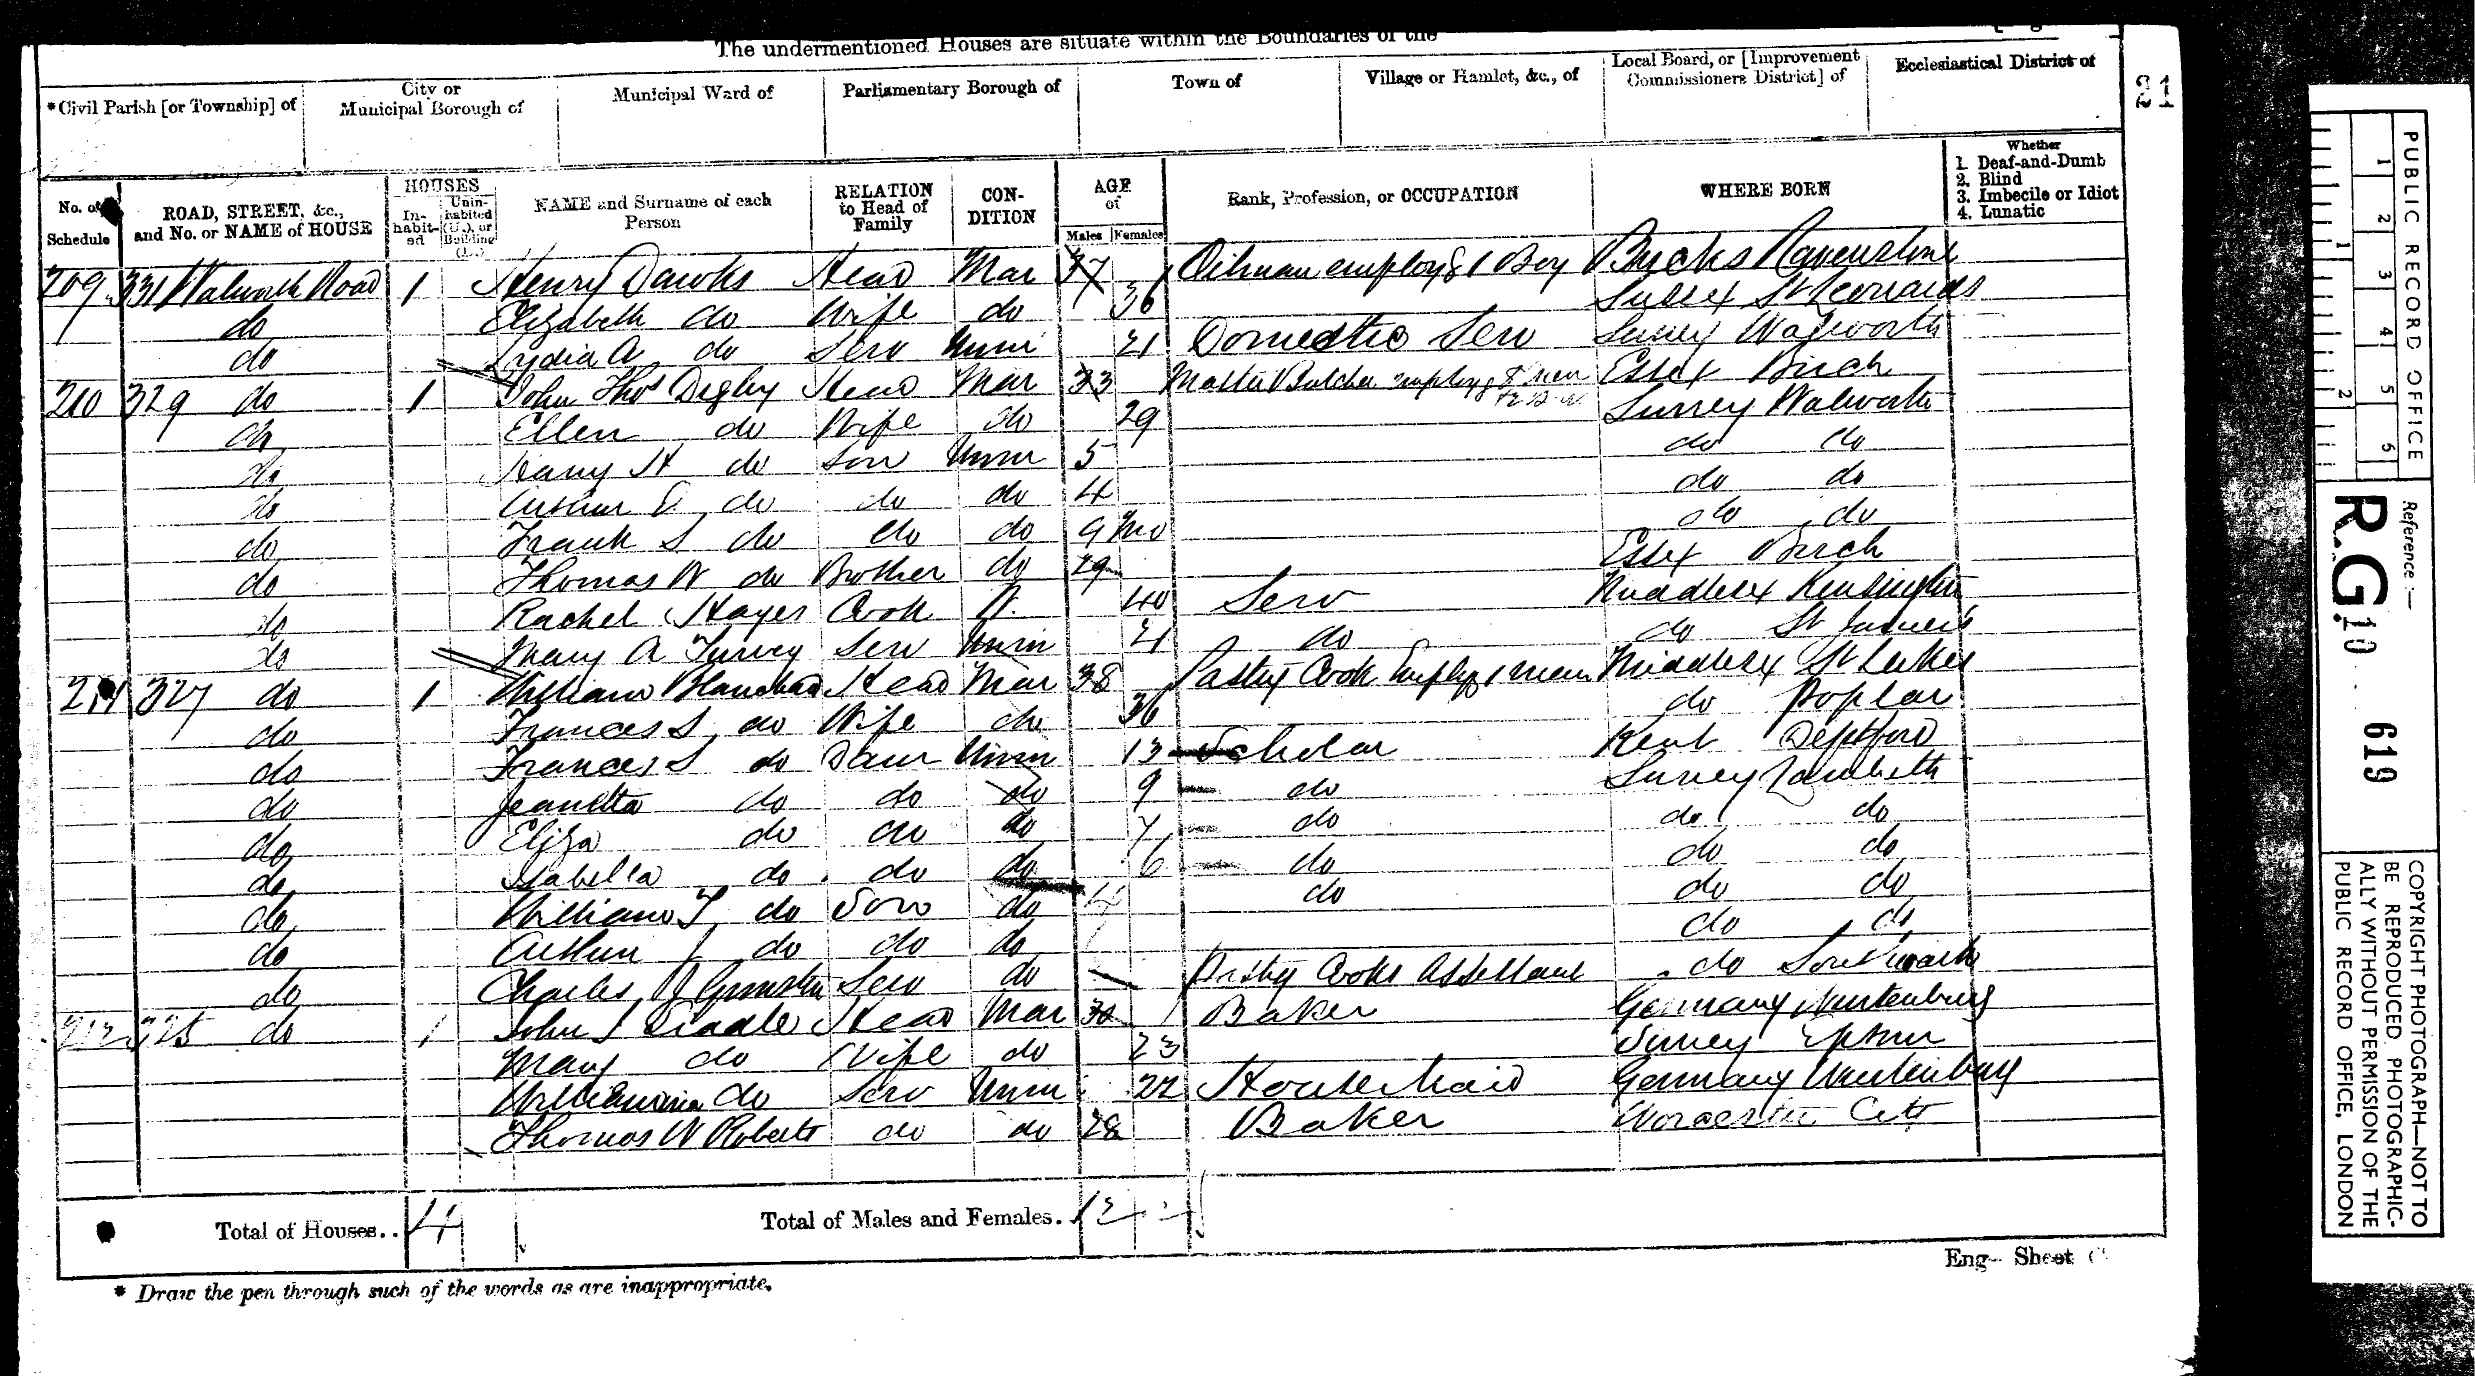 The undermentioned Houses are situate within the Boundaries of the
*Civil Parish [or Township] of
City or Municipal Borough of
Municipal Ward of
Parliamentary Borough of
Town of
Village or Hamlet, &c., of
Local Board, or [Improvement Commissioners District] of
Ecclesiastical District of
21
No. of Schedule
ROAD, STREET, &c., and No. or NAME of HOUSE
HOUSES
In-habit-ed
Unin-habited (U.), or Building (B.)
NAME and Surname of each Person
RELATION to Head of Family
CON-DITION
AGE of
Males Females
Rank, Profession, or OCCUPATION
WHERE BORN
Whether
1. Deaf-and-Dumb
2. Blind
3. Imbecile or Idiot
4. Lunatic
209 331 Walworth Road 1 Henry Dawks Head Mar 37 Oilman employg 1 Boy Bucks Ravenstone
do Elizabeth do Wife do 36 Sussex St Leonards
do Lydia A do Serv Unm 21 Domestic Serv Surrey Walworth
210 329 do 1 John Thos Digby Head Mar 33 Master Butcher employg 8 men Essex Birch
do Ellen do Wife do 29 Surrey Walworth
do Harry H do Son Unm 5 do do
do Arthur do do do 4 do do
do Frank S do do do 9 Mo do do
do Thomas W do Brother do 29 Essex Birch
do Rachel Hayes Cook 40 Serv Middlesex Kensington
do Mary A Turvey Serv Unm 21 do do St James's
211 327 do 1 William Blanchard Head Mar 38 Pastry Cook Employg 1 man Middlesex St Lukes
do Frances S do Wife do 36 do Poplar
do Frances S do Daur Unm 13 Scholar Kent Deptford
do Jeanetta do do do 9 do Surrey Lambeth
do Eliza do do do 7 do do do
do Isabella do do do 6 do do do
do William T do Son do 4 do do do
do Arthur J do do do do do
do Charles J Serv do Pastry Cooks Assistant do Southwark
212 325 do 1 John Head Mar 32 Baker Germany Wurtenburg
Mary do Wife do 23 Surrey Epsom
Wilhelmina do Serv Unm 22 Housemaid Germany Wurtenburg
Thomas W Roberts do do 28 Baker Worcester City
Total of Houses.. 4
Total of Males and Females. 12
Eng— Sheet
* Draw the pen through such of the words as are inappropriate.
PUBLIC RECORD OFFICE
1 2 3 4 5 6
1 2
Reference:—
R.G. 10 619
COPYRIGHT PHOTOGRAPH—NOT TO
BE REPRODUCED PHOTOGRAPHIC-
ALLY WITHOUT PERMISSION OF THE
PUBLIC RECORD OFFICE, LONDON